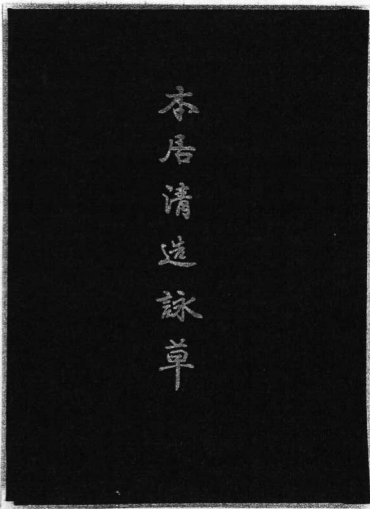 本居清造詠草